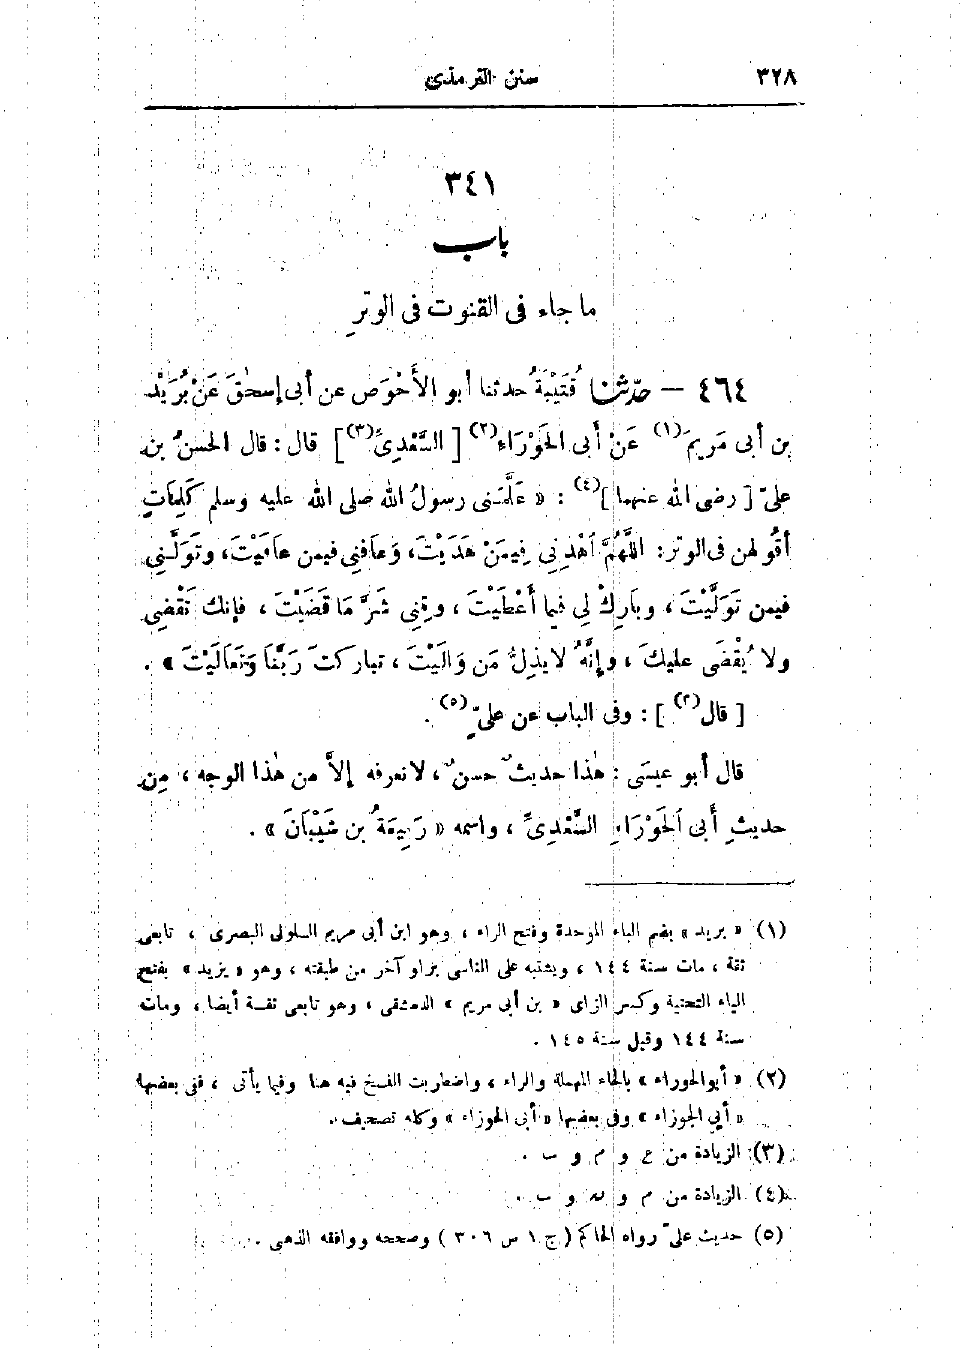 ٣٢٨
سنن الترمذى
٣٤١
باب
ما جاء فى القنوت فى الوترِ
٤٦٤ — حدّثنا قُتَيْبَةُ حدثنا أبو الأَحْوَصِ عن أبى إسحٰقَ عَنْ بُرَيْدِ
بن أبى مَريمَ(١) عَنْ أَبى الحَوْرَاءِ(٢) [ السَّعْدِىِّ(٣)] قال : قال الحسنُ بن
علىّ [ رضى الله عنهما ](٤) : « عَلَّمَنى رسولُ الله صلى الله عليه وسلم كَلِمَاتٍ
أقُولهن فى الوتر : اللَّهُمَّ اَهْدِنِى فِيمَنْ هَدَيْتَ، وَعَافنِى فيمن عافَيْتَ ، وتَوَلَّنِى
فيمن تَوَلَّيْتَ ، وبَارِكْ لِى فيما أَعْطَيْتَ ، وقِنِى شَرَّ مَا قَضَيْتَ ، فإنك تَقْضِى
ولا يُقْضَى عليكَ ، وإنَّهُ لا يذِلُّ مَن وَالَيْتَ ، تباركتَ رَبَّنَا وَتَعَالَيْتَ » .
[ قال(٢) ] : وفى الباب عن علىّ(٥) .
قال أبو عيسَى : هٰذا حديثٌ حسنٌ ، لا نعرفه إلاَّ من هٰذا الوجه ، مِن
حديثِ أَبى اَلحَوْرَاءِ السَّعْدِىِّ ، واسمه « رَبِيعَةُ بن شَيْبَانَ » .
(١) « بريد » بضم الباء الموحدة وفتح الراء ، وهو ابن أبى مريم السلولى البصرى ، تابعى
ثقة ، مات سنة ١٤٤ ، ويشتبه على الناس براو آخر من طبقته ، وهو « يزيد » بفتح
الياء التحتية وكسر الزاى « بن أبى مريم » الدمشقى ، وهو تابعى ثقة أيضا ، ومات
سنة ١٤٤ وقيل سنة ١٤٥ .
(٢) « أبو الحوراء » بالحاء المهملة والراء ، واضطربت النسخ فيه هنا وفيما يأتى ، فنى بعضها
« أبى الجوزاء » وفى بعضها « أبى الحوزاء » وكله تصحيف .
(٣) الزيادة من ع و م و ب .
(٤) الزيادة من م و ﻫ و ب .
(٥) حديث علىّ رواه الحاكم ( ج ١ ص ٣٠٦ ) وصححه ووافقه الذهبى .